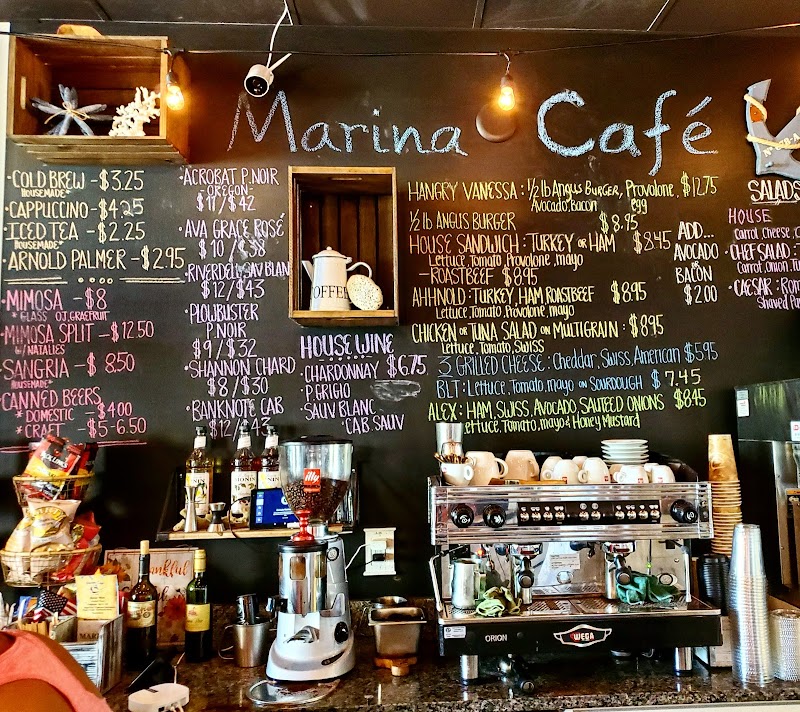 Marina Café
COLD BREW - $3.25
HOUSEMADE
CAPPUCCINO - $4.25
ICED TEA - $2.25
HOUSEMADE
ARNOLD PALMER - $2.95
MIMOSA - $8
* GLASS OJ, GRAEFRUIT
MIMOSA SPLIT - $12.50
W/ NATALIES
SANGRIA - $8.50
HOUSEMADE
CANNED BEERS
* DOMESTIC - $4.00
* CRAFT - $5-6.50
ACROBAT P.NOIR
- OREGON -
$11 / $42
AVA GRACE ROSÉ
$10 / $38
RIVERDELL SAV BLAN
$12 / $43
PLOWBUSTER
P.NOIR
$9 / $32
SHANNON CHARD
$8 / $30
BANKNOTE CAB
$12 / $43
HOUSE WINE
CHARDONNAY $6.75
P.GRIGIO
SAUV BLANC
CAB SAUV
HANGRY VANESSA: 1/2 lb Angus Burger, Provolone, $12.75
Avocado, Bacon egg
1/2 lb ANGUS BURGER $8.75
HOUSE SANDWICH: TURKEY or HAM $8.45
Lettuce, Tomato, Provolone, mayo
- ROASTBEEF $8.95
AHHNOLD: TURKEY, HAM, ROASTBEEF $8.95
Lettuce, Tomato, Provolone, mayo
CHICKEN or TUNA SALAD on MULTIGRAIN: $8.95
Lettuce, Tomato, Swiss
3 GRILLED CHEESE: Cheddar, Swiss, American $5.95
BLT: Lettuce, Tomato, mayo on SOURDOUGH $7.45
ALEX: HAM, SWISS, AVOCADO, SAUTEED ONIONS $8.45
Lettuce, Tomato, mayo & Honey Mustard
ADD...
AVOCADO
or
BACON
$2.00
SALADS
HOUSE
Carrot, Cheese,
CHEF SALAD:
Carrot, Onion,
CAESAR:
Shaved
COFFEE
illy
ORION
WEGA